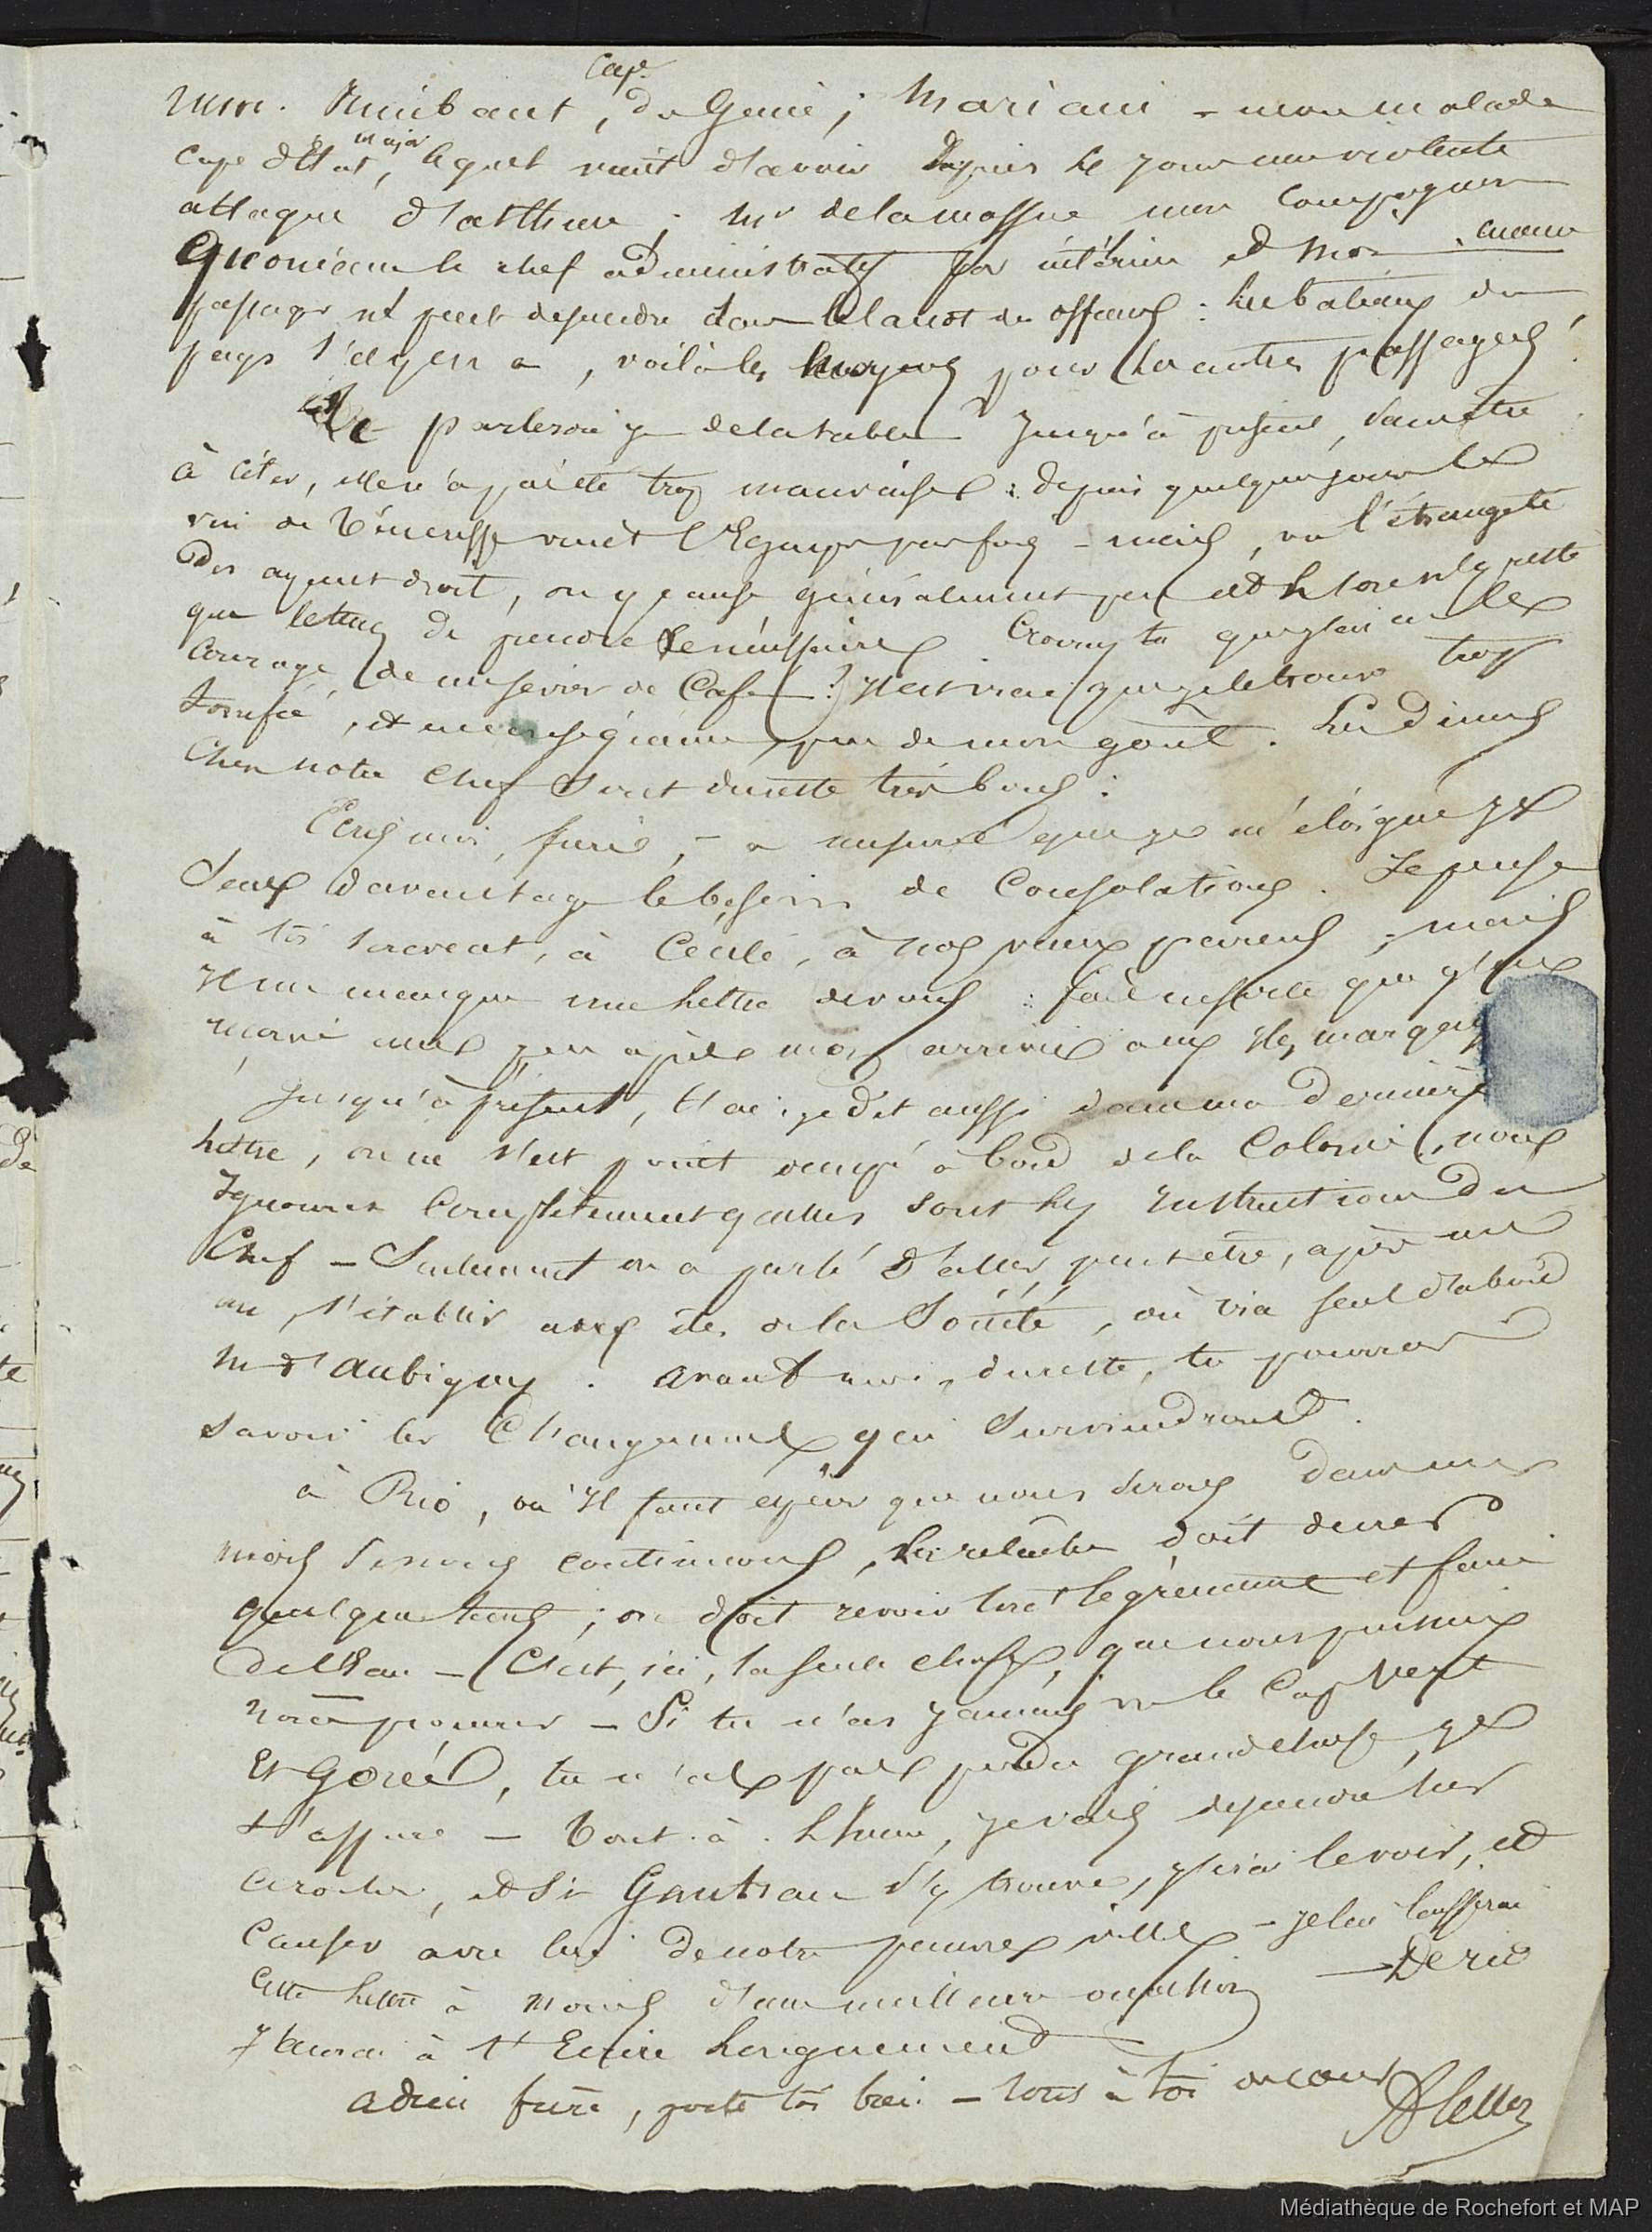 Cape
mm. Raimbaut, du Génie ; Mariani - mon malade
major
cape d'Etat, lequel vient d'avoir depuis le jour une violente
attaque d'asthme ; Mr delamassue mon compagnon
le chef administratif par intérim et moi . aucun
passager ne peut descendre dans le canot des officiers : les bateaux du
pays s'il y en a, voilà les moyens pour les autres passagers !
Te parlerai je de la table jusqu'à présent, sans être
à citer, elle n'a pas été trop mauvaise : depuis quelques jours le
vin de Ténériffe vient l'Egayer parfois - mais, vu l'étrangeté
des ayant droit, on y cause généralement peu et lorsqu'il y reste
que le tems de prendre le nécessaire . Croirais tu que j'ai eu le
courage de me sevrer de Café ! Il est vrai que je le trouve trop
torréfié, et peu de mon goût . Les diners
chez notre chef sont du reste très bons :
Ecris moi, frère, - a mesure que je m'éloigne je
sens davantage le besoin de Consolations . Je pense
à toi souvent, à Cécile, à nos vieux parens ; mais
Il me manque une lettre de vous : fais ensorte que j'en
une peu après mon arrivée aux Iles marquises
Jusqu'à présent, t'ai-je dit aussi dans ma dernière
lettre, on ne s'est point occupé à bord de la Colonie, nous
Ignorons complètement quelles sont les Instructions du
Chef - Seulement on a parlé d'aller peut être, après un
an, s'établir aux iles de la Société, où ira seul d'abord
M d'Aubigny . avant moi, du reste, tu pourras
savoir les Changements qui surviendront .
à Rio, où Il faut espérer que nous serons dans un
mois si nous continuons, la relâche doit durer
quelque tems ; on doit revoir tout le gréement et faire
de l'Eau - C'est, ici, la seule chose, que nous puissions
nous procurer - Si tu n'as jamais vu le Cap Vert
Et Gorée, tu n'as pas perdu grand chose, je
t'assure - Tout à l'heure, je vais descendre sur
ce rocher, et si Gautreau s'y trouve, j'irai le voir, et
causer avec lui de notre pauvre ville - Je lui laisserai
cette lettre à moins d'une meilleure occasion - De rio
J'aurai à t'Ecrire longuement
adieu frère, porte toi bien - tout à toi de cœur
Médiathèque de Rochefort et MAP